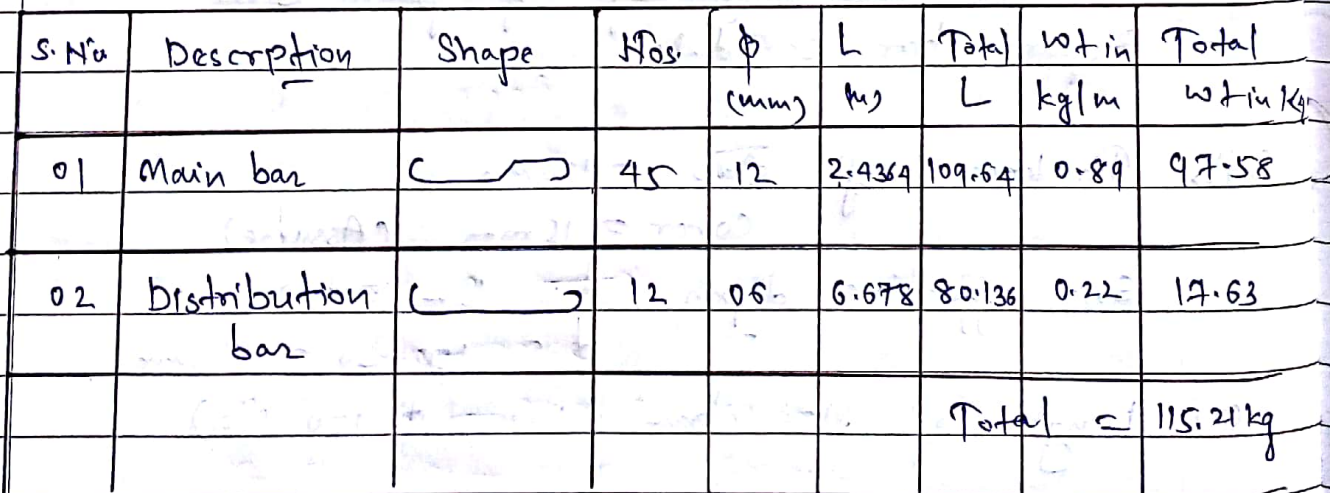 S. No Descrption Shape Nos. ϕ (mm) L (m) Total L wt in kg/m Total wt in kg
01 Main bar 45 12 2.4364 109.64 0.89 97.58
02 Distribution bar 12 06 6.678 80.136 0.22 17.63
Total = 115.21 kg